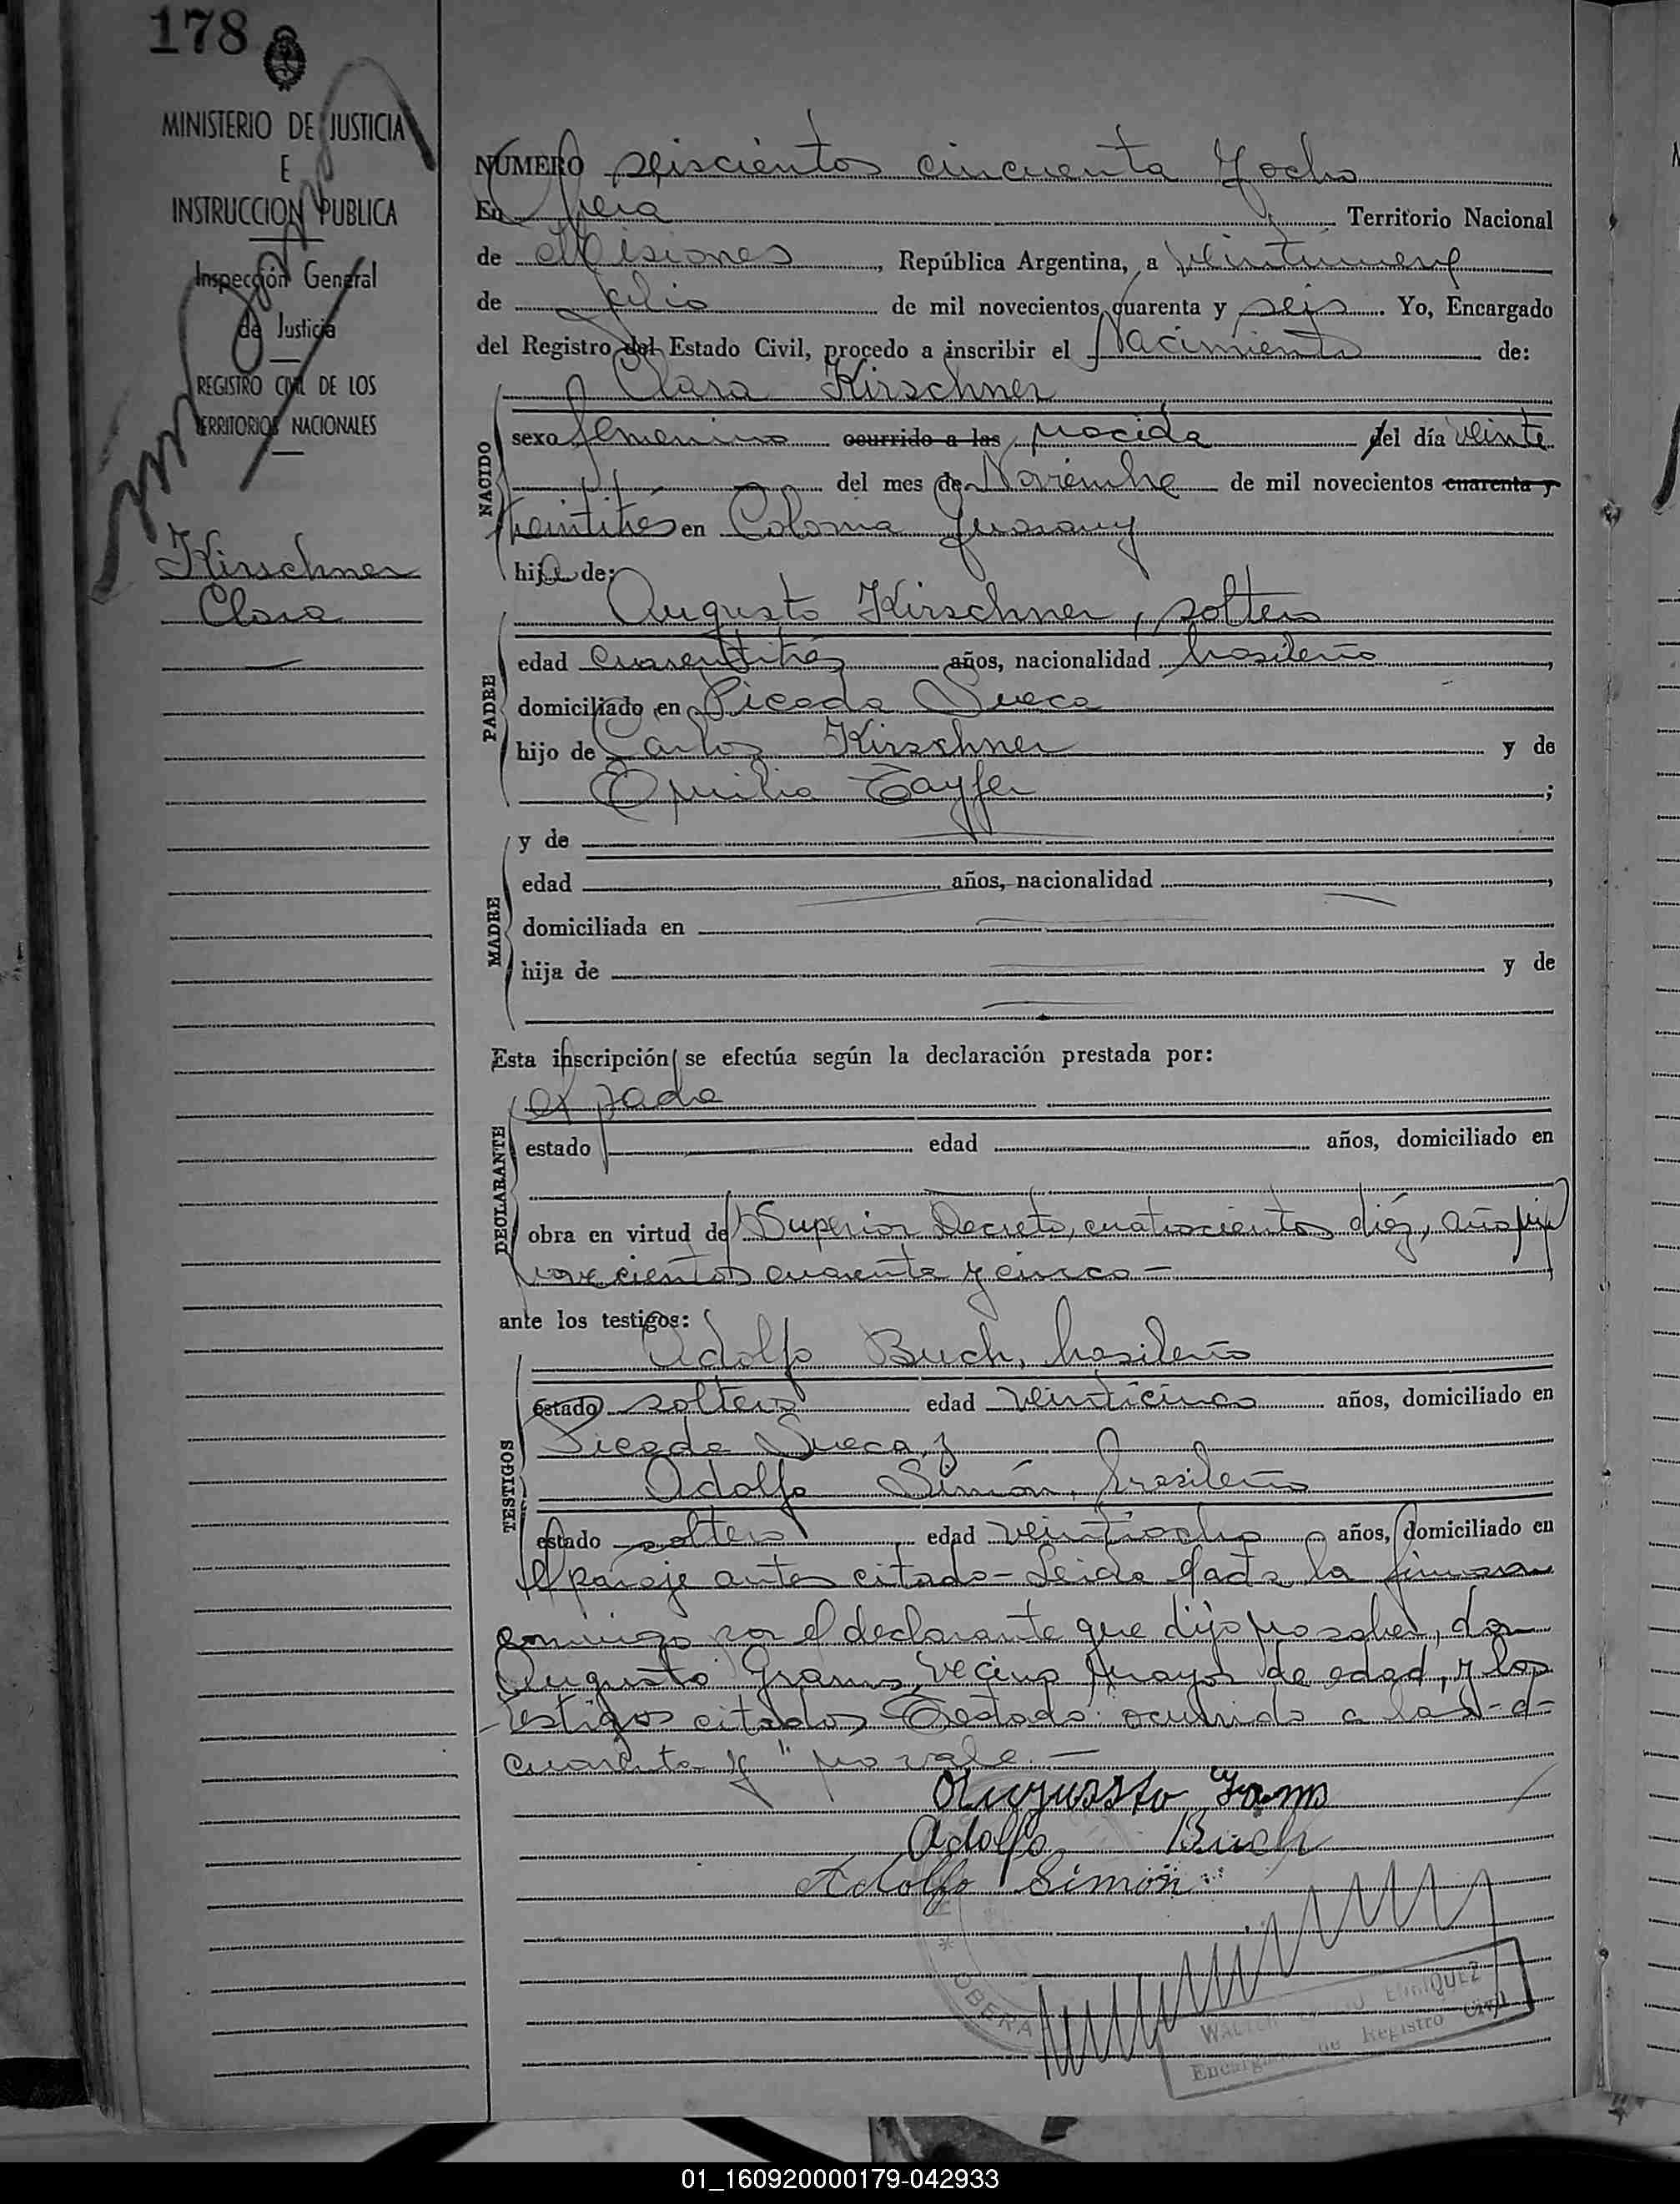 178
MINISTERIO DE JUSTICIA
E
INSTRUCCION PUBLICA
Inspección General
de Justicia
REGISTRO CIVIL DE LOS
TERRITORIOS NACIONALES
Kirschner
Clara
NUMERO seiscientos cincuenta y ocho
En Oberá Territorio Nacional
de Misiones, República Argentina, a veintinueve
de Julio de mil novecientos cuarenta y seis. Yo, Encargado
del Registro del Estado Civil, procedo a inscribir el Nacimiento de:
Clara Kirschner
NACIDO
sexo femenino ocurrido a las nacida del día veinte
del mes de Noviembre de mil novecientos cuarenta y
treintitrés en Colonia Guarany
hija de:
PADRE
Augusto Kirschner, soltero
edad cuarentitrés años, nacionalidad brasileño,
domiciliado en Picada Sueca
hijo de Carlos Kirschner y de
Emilia Tayfer;
MADRE
y de
edad años, nacionalidad ,
domiciliada en
hija de y de
Esta inscripción se efectúa según la declaración prestada por:
DECLARANTE
el padre
estado edad años, domiciliado en
obra en virtud del Superior Decreto, cuatrocientos diez, año mil
novecientos cuarenta y cinco-
ante los testigos:
TESTIGOS
Adolfo Buch, brasileño
estado soltero edad veinticinco años, domiciliado en
Picada Sueca, y
Adolfo Simón, brasileño
estado soltero edad veintiocho años, domiciliado en
el paraje antes citado- Leida el acta la firman
conmigo por el declarante que dijo no saber, don
Augusto Grams, vecino mayor de edad, y los
testigos citados Testado: ocurrido a las -d-
cuarenta y" no vale.-
Augusto Grams
Adolfo Buch
Adolfo Simón
* OBERA
WALTER ENRIQUEZ
Encargado de Registro Civil
01_160920000179-042933